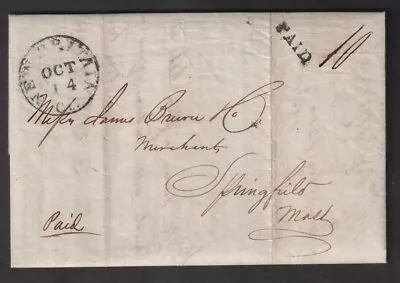 NEW BRITAIN
OCT
14
CT.
PAID
10
Messrs James Brewer & Co.
Merchants
Springfield
Mass
Paid